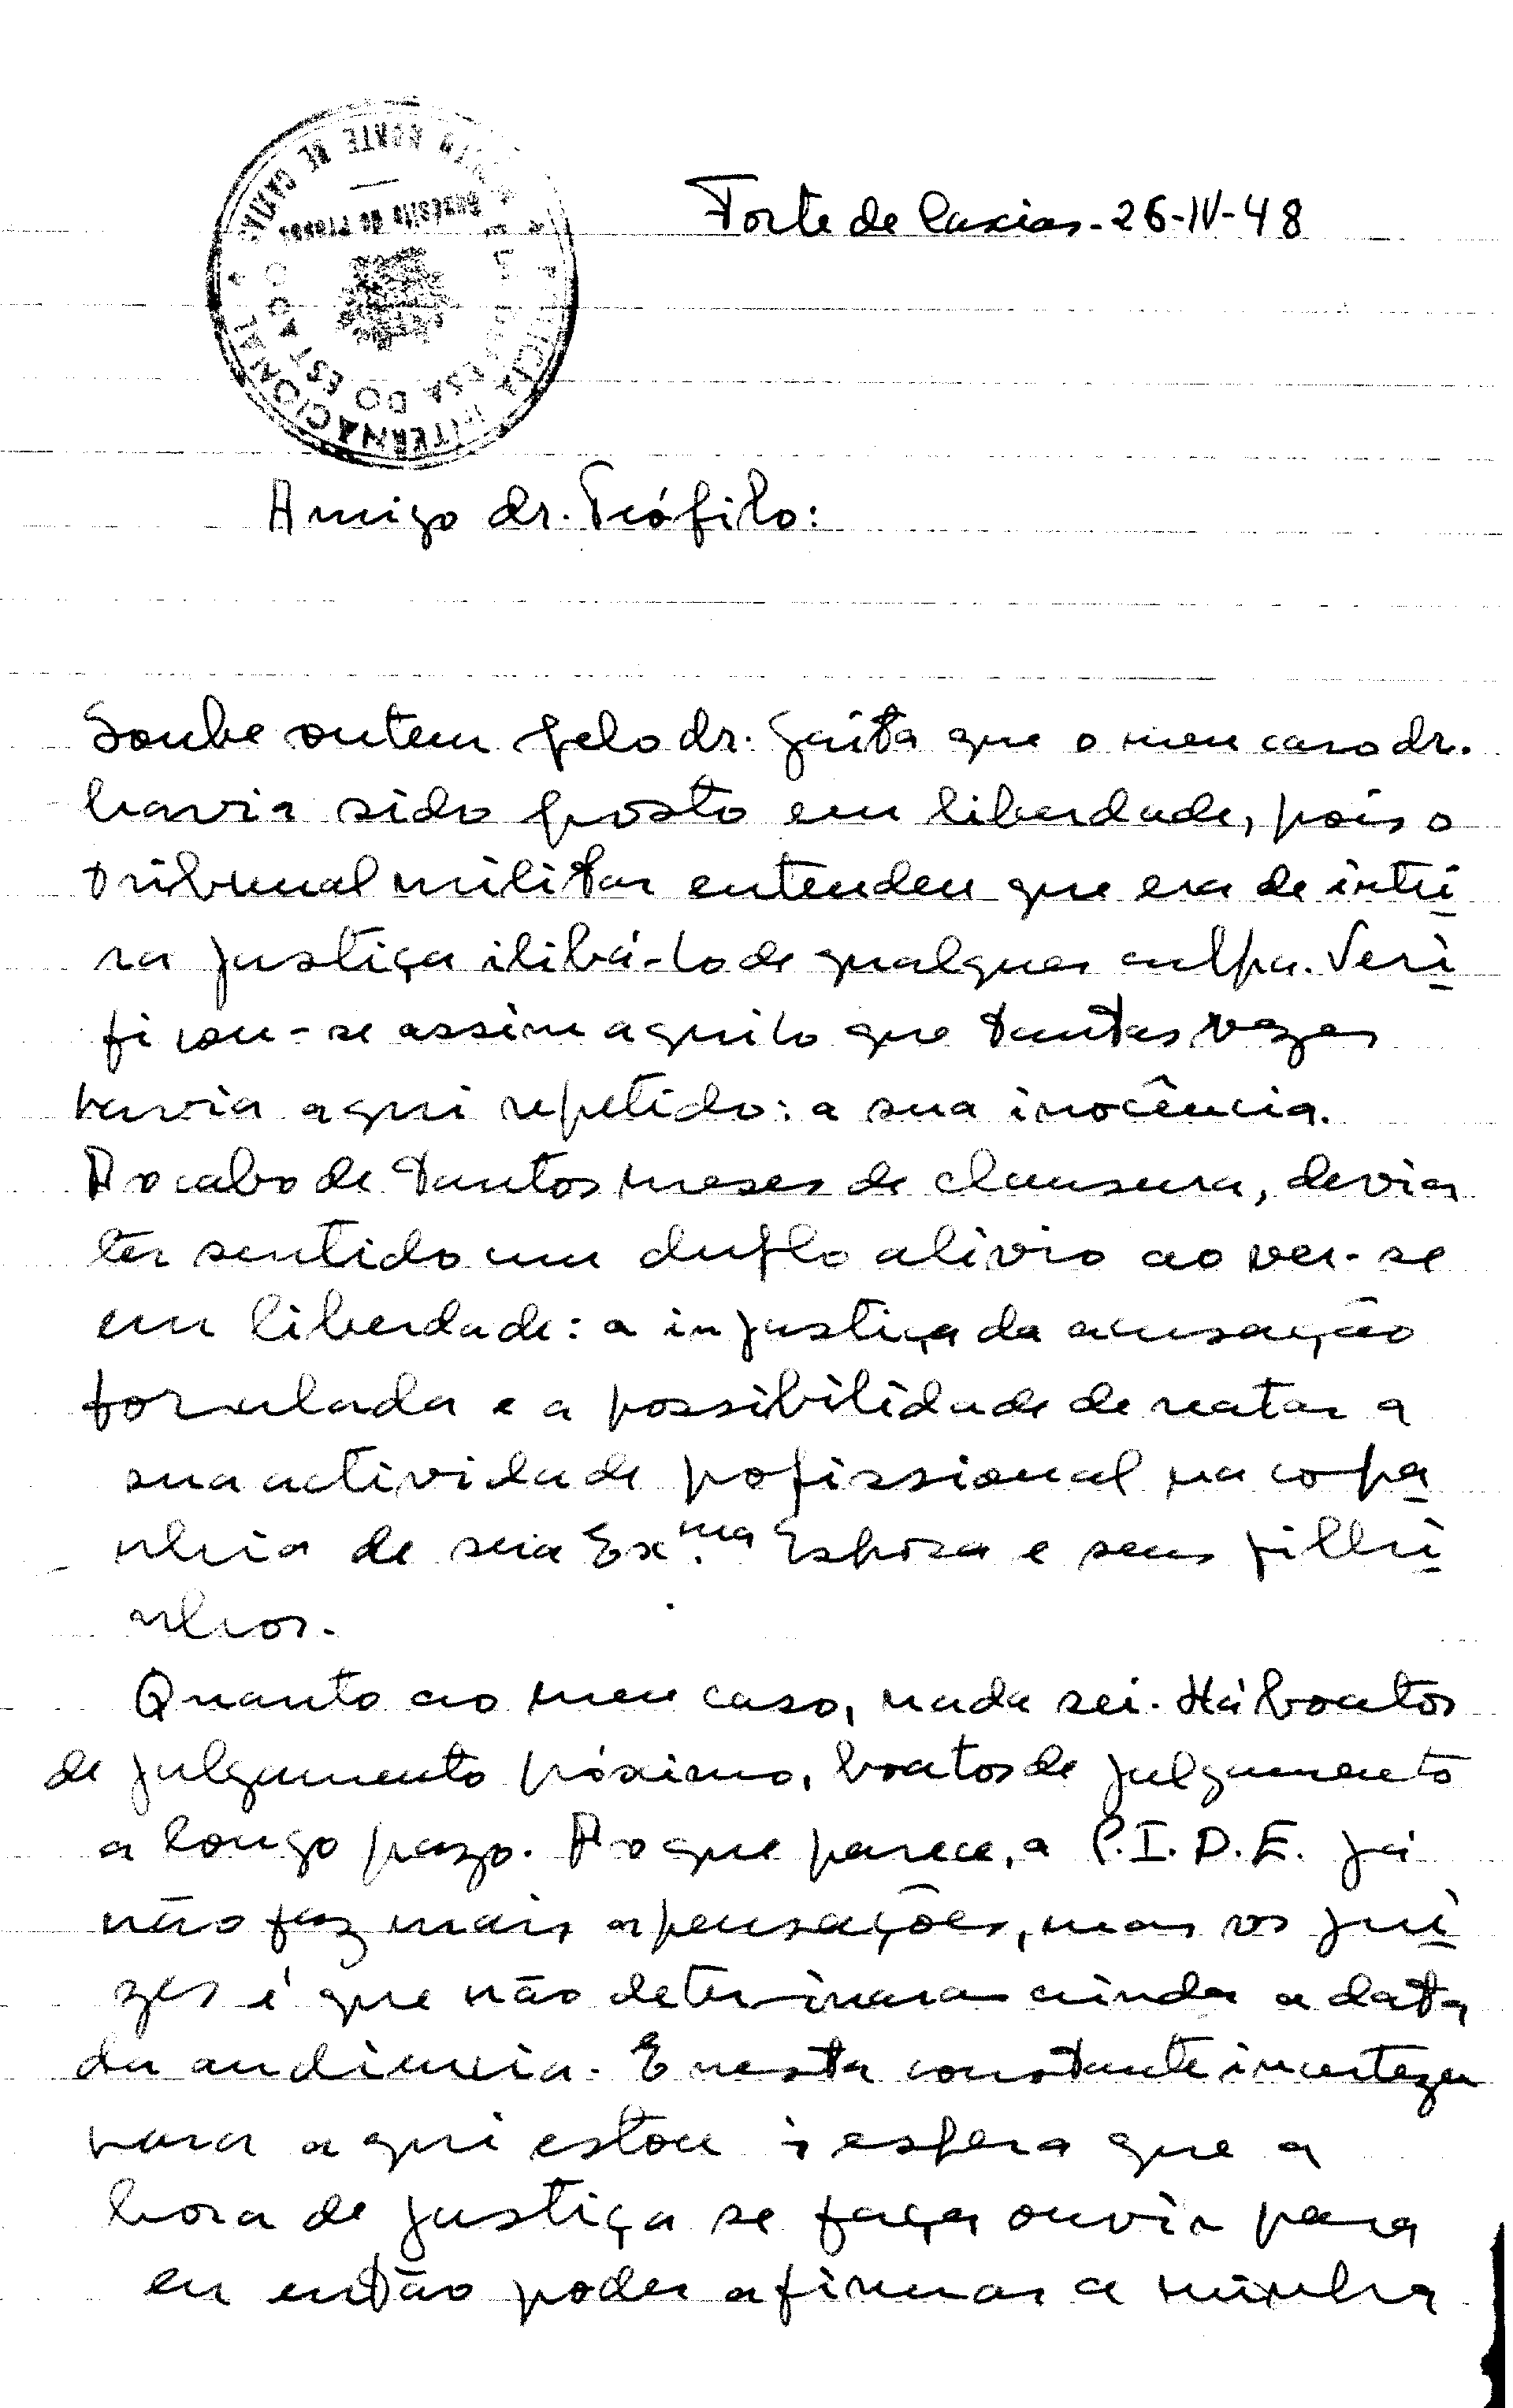 POLICIA INTERNACIONAL
E DE DEFESA DO ESTADO
FORTE DE CAXIAS
Depósito de Presos
Forte de Caxias - 26-IV-48
Amigo dr. Teófilo:
Soube ontem pelo dr. que o meu caro dr.
havia sido posto em liberdade, pois o
tribunal militar entendeu que era de intei
ra justiça ilibá-lo de qualquer culpa. Veri
ficou-se assim aquilo que tantas vezes
havia aqui repetido: a sua inocência.
Ao cabo de tantos meses de clausura, devia
ter sentido um duplo alívio ao ver-se
em liberdade: a injustiça da acusação
formulada e a possibilidade de reatar a
sua actividade pofissional na copa
nhia de sua Ex.ma Esposa e seus filhi
nhos.
Quanto ao meu caso, nada sei. Há boatos
de julgamento póximo, boatos de julgamento
a longo pazo. Ao que parece, a P.I.D.E. já
não faz mais apensações, mas os juí
zes é que não determinaram ainda a data
da audiencia. E nesta constante incerteza
para aqui estou à espera que a
hora de justiça se faça ouvir para
eu então poder afirmar a minha